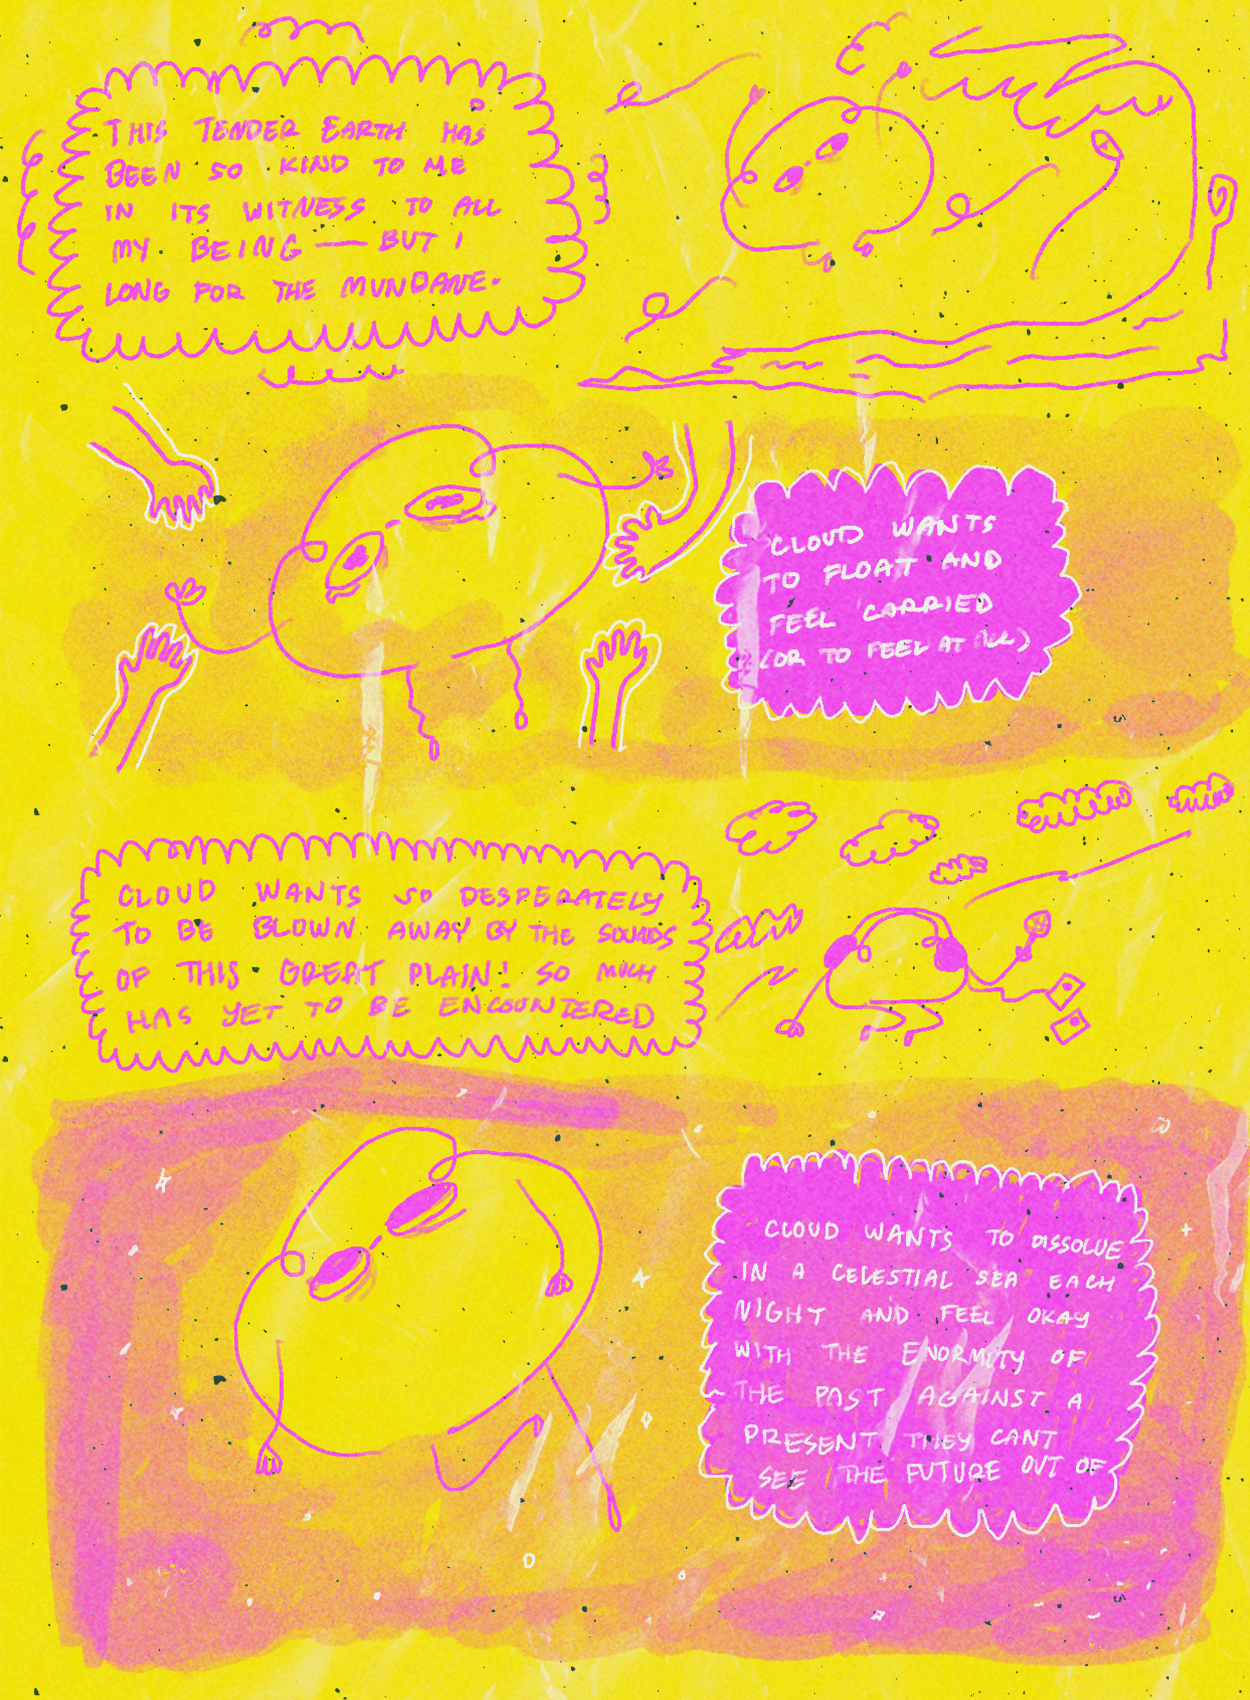 THIS TENDER EARTH HAS
BEEN SO KIND TO ME
IN ITS WITNESS TO ALL
MY BEING — BUT I
LONG FOR THE MUNDANE.
CLOUD WANTS
TO FLOAT AND
FEEL CARRIED
(OR TO FEEL AT ALL)
CLOUD WANTS SO DESPERATELY
TO BE BLOWN AWAY BY THE SOUNDS
OF THIS GREAT PLAIN! SO MUCH
HAS YET TO BE ENCOUNTERED
CLOUD WANTS TO DISSOLVE
IN A CELESTIAL SEA EACH
NIGHT AND FEEL OKAY
WITH THE ENORMITY OF
THE PAST AGAINST A
PRESENT THEY CANT
SEE THE FUTURE OUT OF